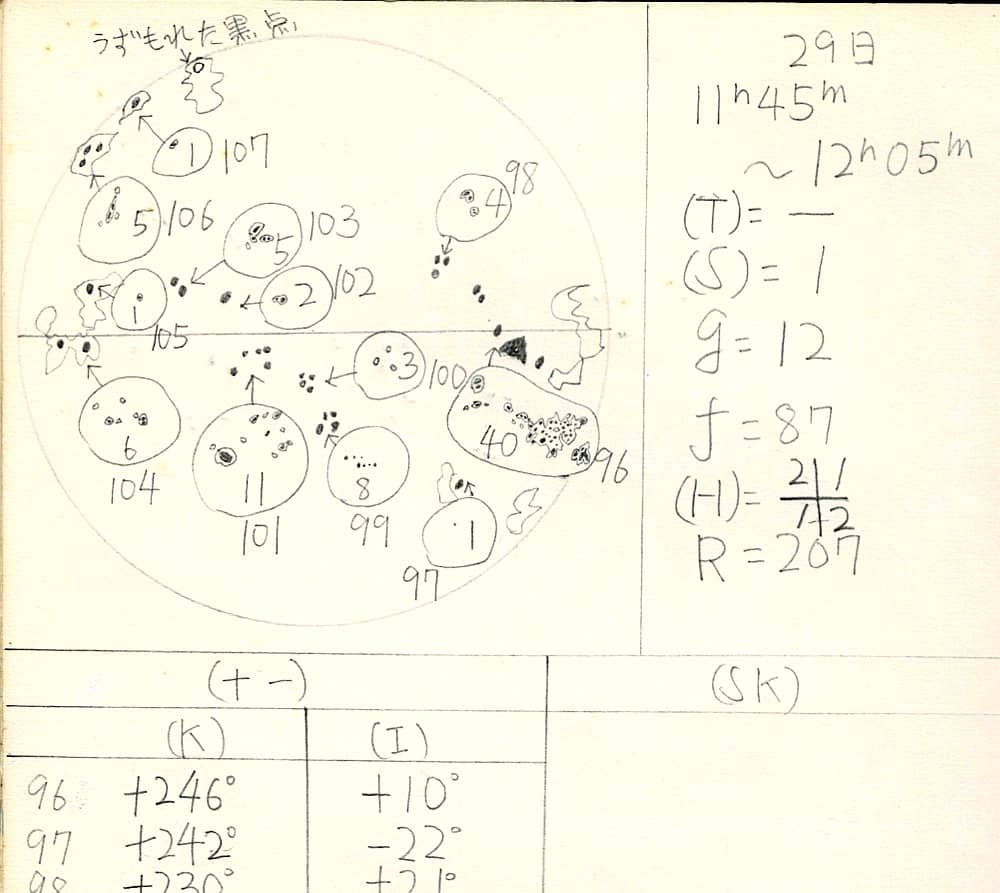 うずもれた黒点
1 107
5 106
5 103
2 102
4 98
1 105
3 100
6
104
11
101
8
99
40 96
1
97
29日
11h45m
~12h05m
(T)= —
(S)= 1
g= 12
f= 87
(H)= 2 1
1 2
R=207
(+-)
(SK)
(K) (I)
96 +246° +10°
97 +242° -22°
98 +230° +21°